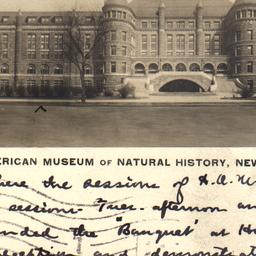 ERICAN MUSEUM OF NATURAL HISTORY, NEW
here the sessions of
session Tues. afternoon an
nded the "Banquet" at H
and demonstrat